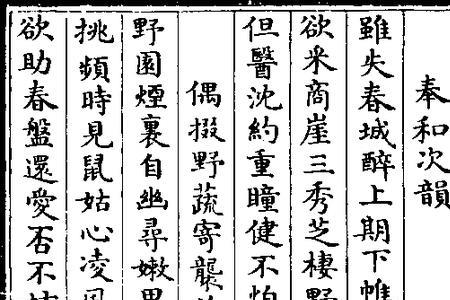 奉和次韻
雖失春城醉上期下帷
欲采商崖三秀芝棲野
但醫沈約重瞳健不怕
偶掇野蔬寄襲
野園煙裏自幽尋嫩
挑頻時見鼠姑心凌
欲助春盤還愛否不